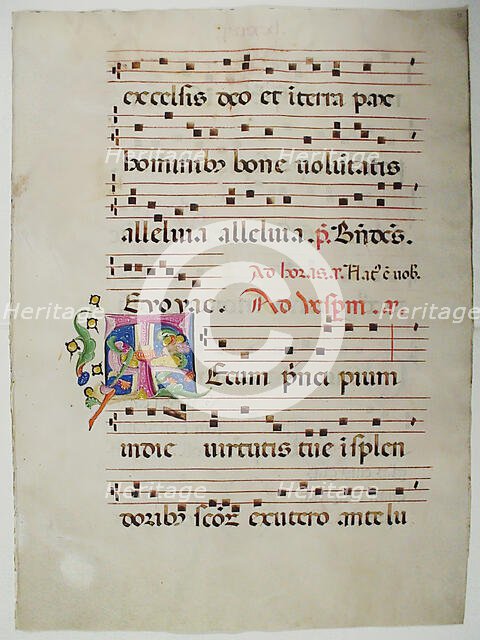 excelsis deo et i terra pax
hominibꝫ bone uolūtatis
alleluia alleluia. p̄. Bn̄dcs.
Ad horas. Hat
Euouae. Ad
Ecum prīcipium
in die uirtutis tue i splen
doribꝫ scōꝝ ex utero ante lu
Heritage Heritage
Heritage Heritage Heritage
Heritage Heritage